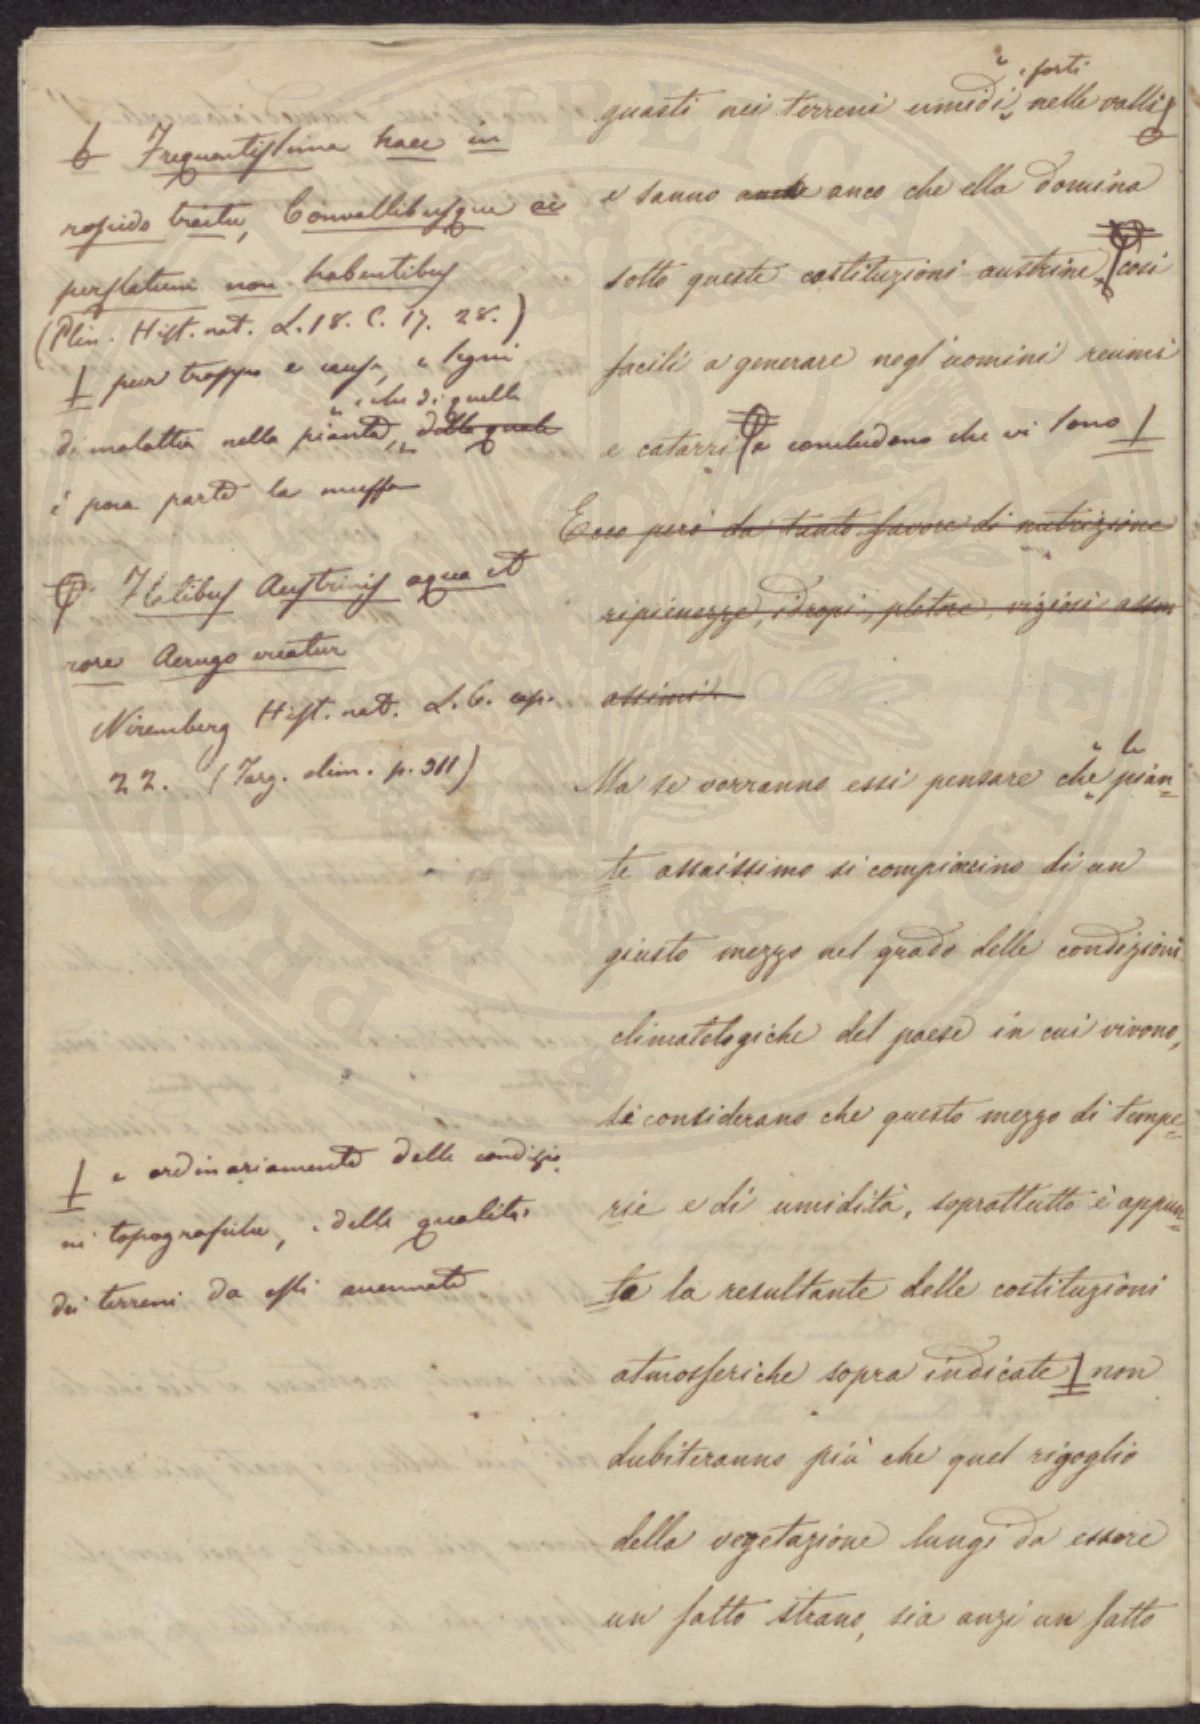 Frequentissima haec in
roscido tractu, Convallibusque ac
perflatum non habentibus
(Plin. Hist. nat. L. 18. C. 17. 28.)
pur troppo e cause, e segni
e che di quelle
di malattia nella pianta, delle quale
è poca parte la muffa
Flatibus Austrinis aqua et
rore Aerugo creatur
Niremberg Hist. nat. L. 6. cap.
22. (Targ. alim. p. 311)
e ordinariamente delle condizio
ni topografiche, e delle qualità
dei terreni da essi accennate
e forti
guasti nei terreni umidi, nelle valli
e sanno anche anco che ella domina
sotto queste costituzioni austrine, così
facili a generare negl'uomini reumi
e catarri e concludono che vi sono
Ecco però da tanto favore di nutrizione
ripienezze, idropi, pletore, vigini assu
assimi
le
Ma se vorranno essi pensare che pian-
te assaissimo si compiaccino di un
giusto mezzo nel grado delle condizioni
climatologiche del paese in cui vivono,
se considerano che questo mezzo di tempe-
rie e di umidità, soprattutto è appun-
to la resultante delle costituzioni
atmosferiche sopra indicate non
dubiteranno più che quel rigoglio
della vegetazione lungi da essere
un fatto strano, sia anzi un fatto